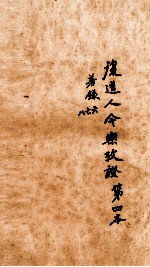 道人今樂攷證第四本
著錄
六七八